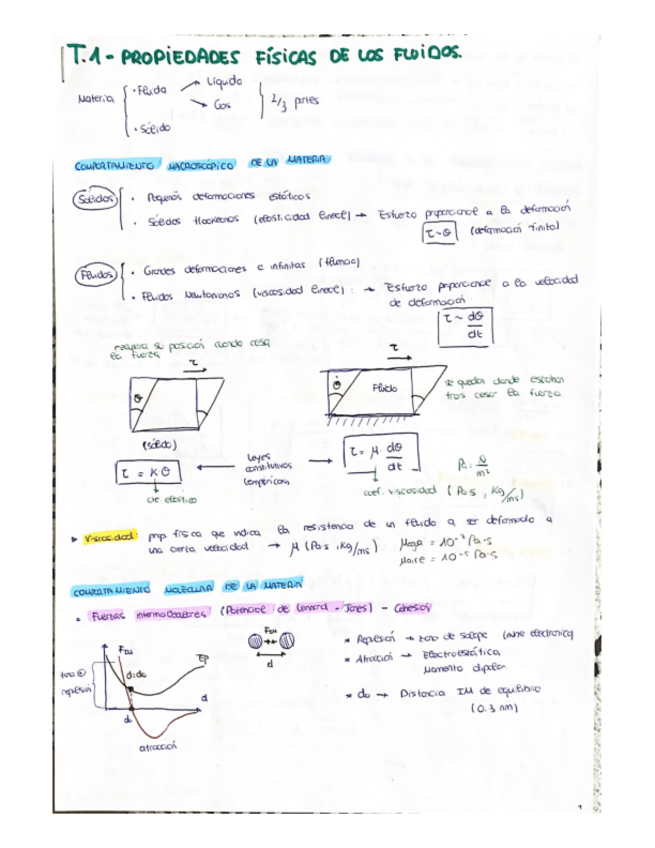 T.1 - PROPIEDADES FÍSICAS DE LOS FLUIDOS.
Materia
· Fluida
Líquido
Gas
2/3 partes
· Sólido
COMPORTAMIENTO MACROSCÓPICO DE LA MATERIA
Sólidos
· Pequeñas deformaciones estáticas
· Sólidos Hookeanos (elasticidad lineal) → Esfuerzo proporcional a la deformación
τ ~ θ (deformación finita)
Fluidos
· Grandes deformaciones e infinitas (fluencia)
· Fluidos Newtonianos (viscosidad lineal): → Esfuerzo proporcional a la velocidad
de deformación
τ ~ dθ/dt
recupera su posición cuando cesa
la fuerza
τ
θ
(sólido)
τ
θ̇
Fluido
se quedan donde estaban
tras cesar la fuerza
τ = K θ
cte elástica
leyes
constitutivas
(empíricas)
τ = μ · dθ/dt
coef. viscosidad (Pa·s, Kg/ms)
Pa = N/m²
▸ Viscosidad: prop física que indica la resistencia de un fluido a ser deformado a
una cierta velocidad → μ (Pa·s, Kg/ms)
μagua = 10⁻³ Pa·s
μaire = 10⁻⁵ Pa·s
COMPORTAMIENTO MOLECULAR DE LA MATERIA
• Fuerzas intermoleculares (Potencial de Lenard - Jones) - Cohesión
FIM
EP
d=do
repulsión
d
do
atracción
FIM
d
* Repulsión → zona de solape (nube electrónica)
* Atracción → Electroestática
Momento dipolar
* do → Distancia IM de equilibrio
(0.3 nm)
1